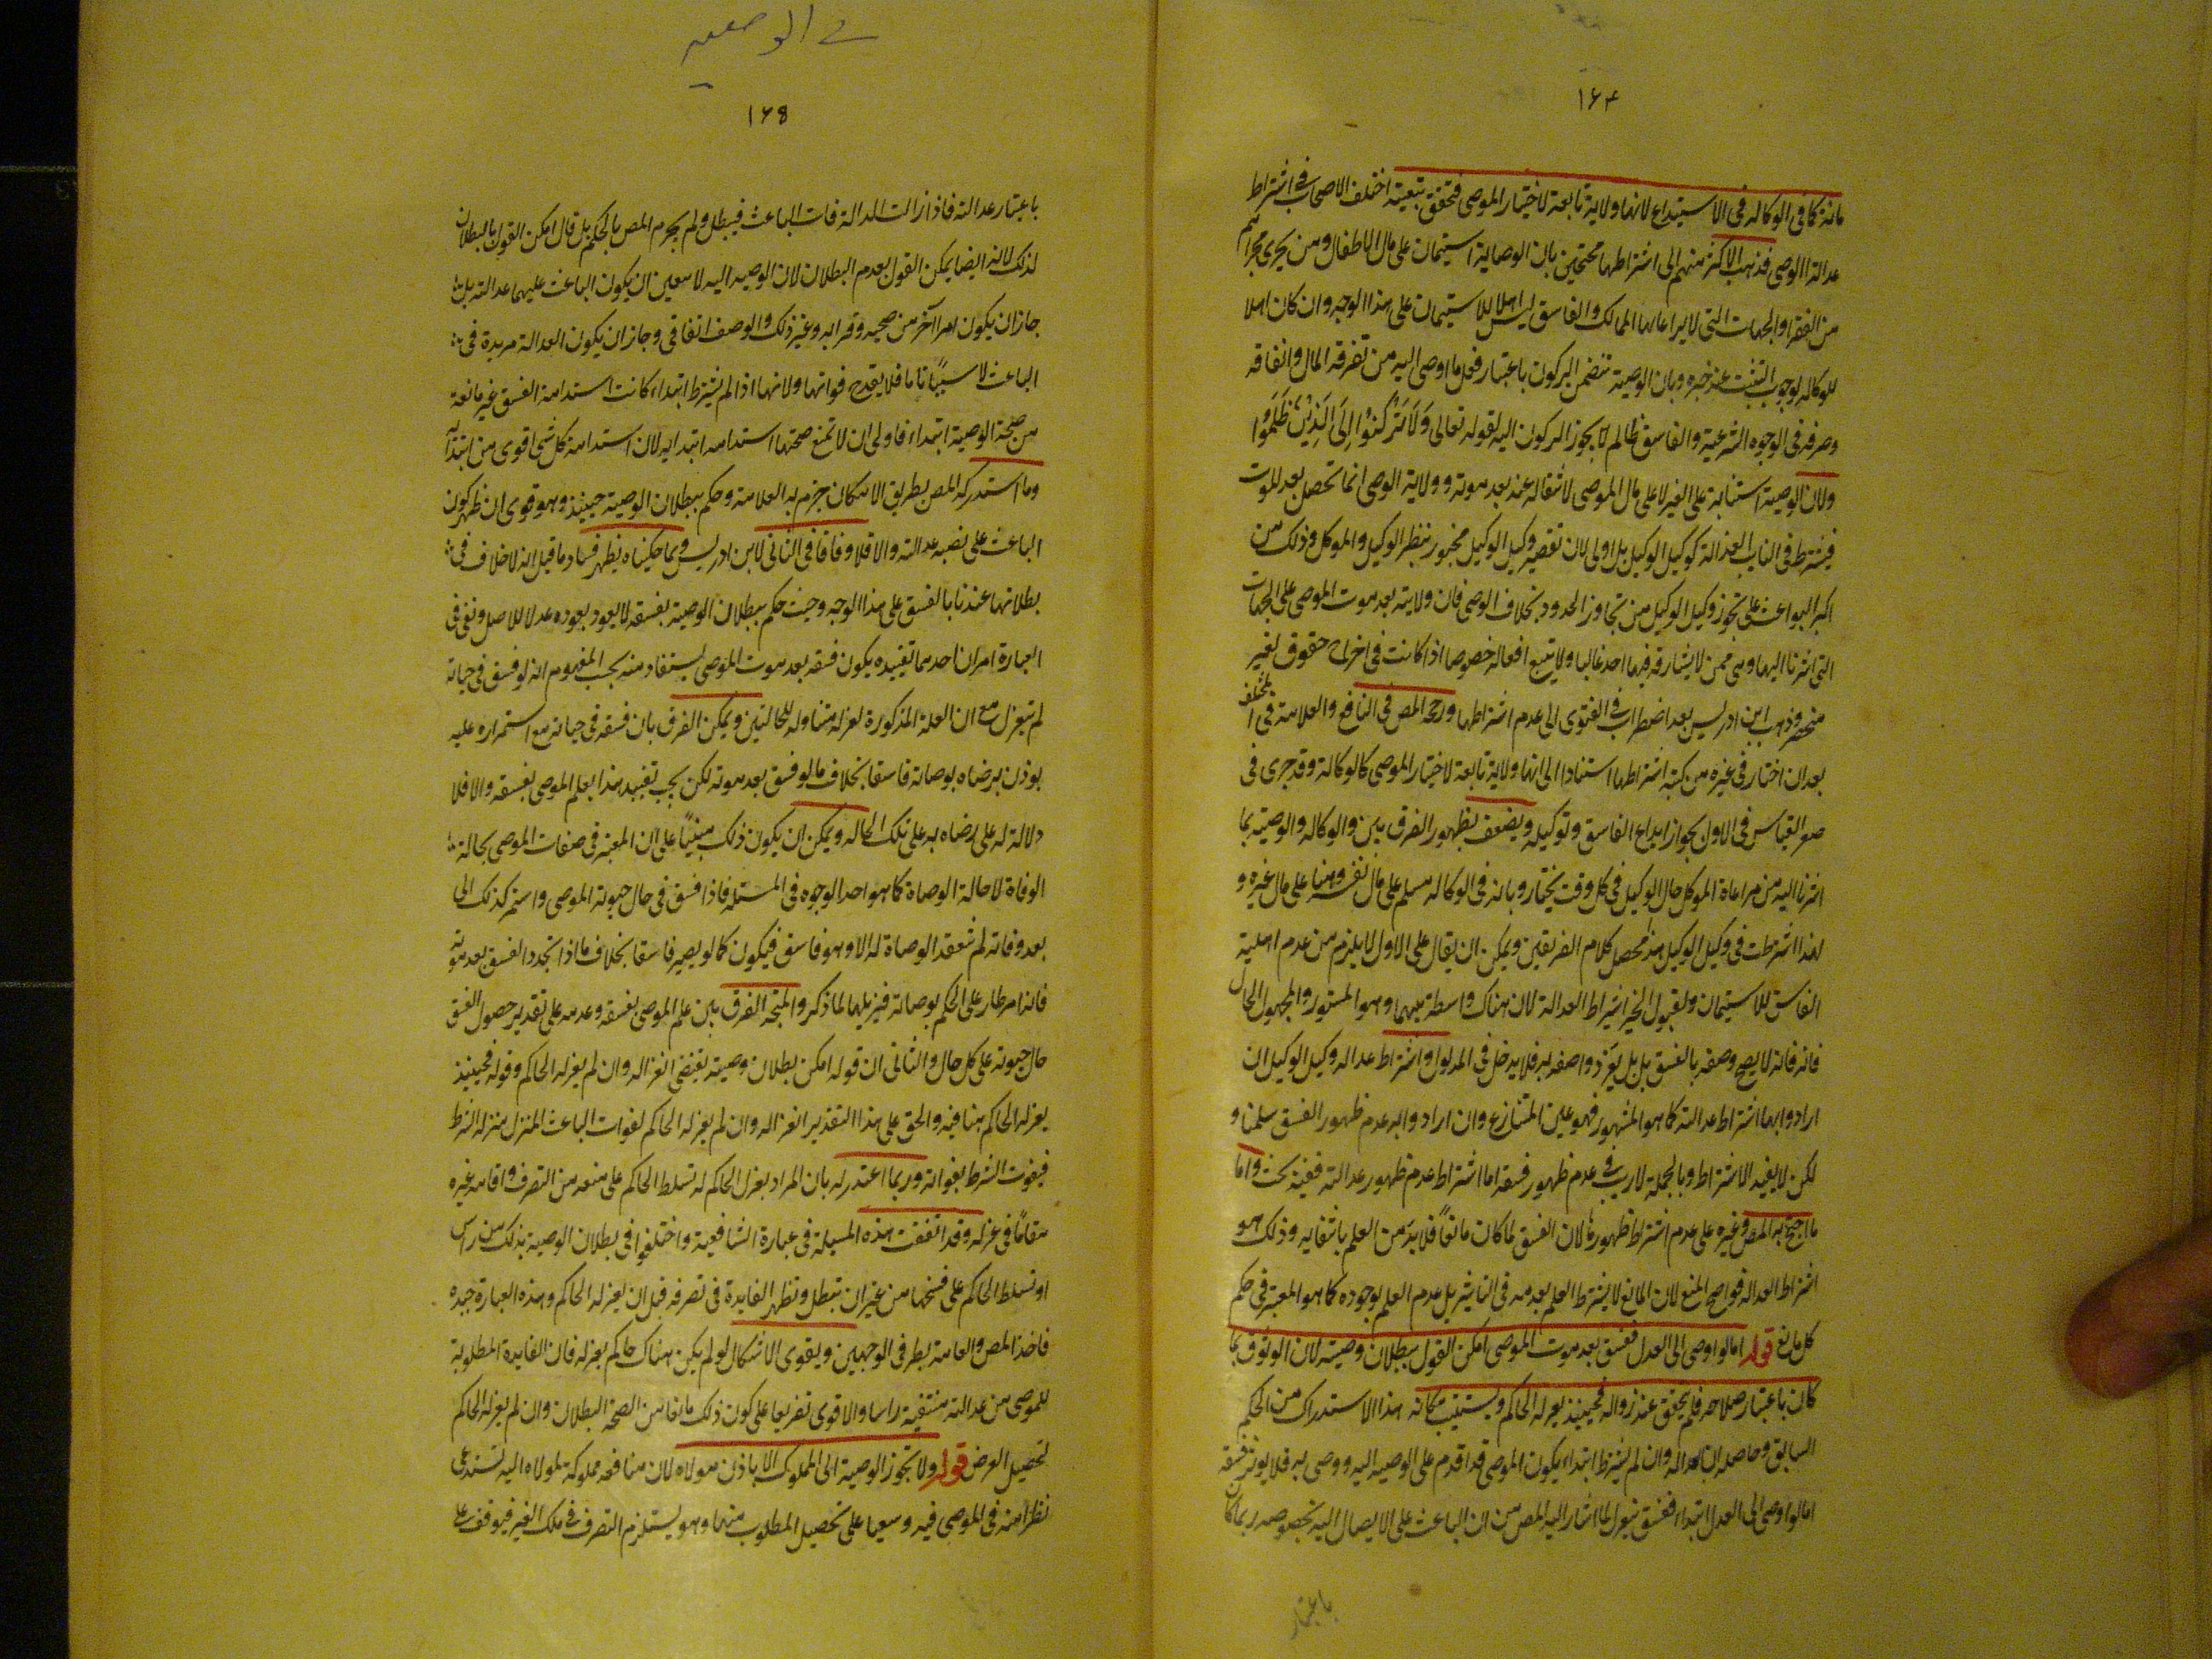 ١٦٤
مانة كما فى الوكاله فى الاستيداع لانها ولاية تابعة لاختيار الموصى فتحقق بتعينه اختلف الاصحاب فى اشتراط
عدالة الوصى فذهب الاكثر منهم الى اشتراطها محتجين بان الوصاية استيمان على مال الاطفال ومن يجرى مجراهم
من الفقرا والجهات التى لا يراعاها المالك والفاسق ليس اهلا للاستيمان على هذا الوجه وان كان اهلا
للوكاله لوجوب التثبت عند خبره وبان الوصية تتضمن الركون باعتبار فعل ما اوصى اليه من تفرقة المال وانفاقه
وصرفه فى الوجوه الشرعية والفاسق ظالم لا يجوز الركون اليه لقوله تعالى وَلَا تَرْكَنُوا إِلَى الَّذِينَ ظَلَمُوا
ولان الوصية استنابة على الغير لا على مال الموصى لانتقاله عنه بعد موته وولاية الوصى انما تحصل بعد الموت
فيشترط فى النايب العدالة كوكيل الوكيل بل اولى لان تقصير وكيل الوكيل مجبور بنظر الوكيل والموكل وذلك من
اكبر البواعث على تحرز وكيل الوكيل من تجاوز الحدود بخلاف الوصى فان ولايته بعد موت الموصى على الجهات
التى اشرنا اليها وهى ممن لا يشارفه فيها احد غالبا ولا يتبع افعاله خصوصا اذا كانت فى اخراج حقوق لغير
منحصر وذهب ابن ادريس بعد اضطراب فى الفتوى الى عدم اشتراطها ورجحه المص فى النافع والعلامة فى المختلف
بعد ان اختار فى غيره من كتبه اشتراطها استنادا الى انها ولاية تابعة لاختيار الموصى كالوكالة وقد جرى فى
صور القياس فى الاول بجواز ايداع الفاسق وتوكيله ويضعف بظهور الفرق بين والوكاله والوصية بما
اشرنا اليه من مراعاة الموكل حال الوكيل فى كل وقت يختار وبانه فى الوكاله مسلم على مال نفسه وهنا على مال غيره و
لهذا اشترطت فى وكيل الوكيل هذ محصل كلام الفريقين ويمكن ان يقال على الاول لا يلزم من عدم اهلية
الفاسق للاستيمان ولقبول الخبر اشتراط العدالة لان هناك واسطة بينهما وهو المستور والمجهول الحال
فانه فانه لا يصح وصفه بالفسق بل بل يعزر واصفه به فلا يدخل فى المدلول واشتراط عداله وكيل الوكيل ان
ارادوا بها اشتراط عدالته كما هو المشهور فهو عين المتنازع وان ارادوا به عدم ظهور الفسق سلمنا و
لكن لا يفيد الاشتراط وبالجملة لا ريب فى عدم ظهور فسقه اما اشتراط عدم ظهور عدالته ففيه بحث واما
ما احتج به المص وغيره على عدم اشتراط ظهورها لان الفسق لما كان مانعًا فلا بد من العلم بانتفايه وذلك هو
اشتراط العداله فواضح المنع لان المانع لا يشترط العلم بعدمه فى التاثير بل عدم العلم بوجوده كما هو المعتبر فى حكم
كل مانع قوله اما لو اوصى الى العدل ففسق بعد موت الموصى امكن القول ببطلان وصيته لان الوثوق بما
كان باعتبار صلاحه فلم يتحقق عند زواله فحينيذ يعزله الحاكم ويستنيب مكانه هذا الاستدراك من الحكم
السابق وحاصله ان العدالة وان لم يشترط ابتداء يكون الموصى قد اقدم على الوصيه اليه ووصى به فلا يوثر فسقه
اما لو اوصى الى العدل ابتداء ففسق ينعزل لما اشار اليه المص من ان الباعث على الايصال اليه بخصوصه ربما كان
باعتبار
فى الوصية
١٦٥
باعتبار عدالته فاذا زالت العدالة فات الباعث فيبطل ولم يجزم المص بالحكم بل قال امكن القول بالبطلان
لذلك لانه ايضا يمكن القول بعدم البطلان لان الوصيه اليه لا يتعين ان يكون الباعث عليهما عدالته بل
جاز ان يكون امرا آخر من صحبه وقرابه وغير ذلك والوصف اتفاقى وجاز ان يكون العدالة مريدة فى
الباعث لا سببًا تاما فلا يقدح فواتها ولانها اذا لم يشترط ابتداء كانت استدامة الفسق غير مانعة
من صحة الوصية ابتداء فاولى ان لا تمنع صحتها استدامه ابتدايه لان استدامة كل شى اقوى من ابتدائه
وما استدركه المص بطريق الامكان جزم به العلامة وحكم ببطلان الوصية حينيذ وهو قوى ان ظهر كون
الباعث على نصبه عدالته والا فلا وفاقا فى الثانى لابن ادريس وبما حكيناه يظهر فساد ما قيل انه لا خلاف فى
بطلانها عندنا بالفسق على هذا الوجه وحيث حكم ببطلان الوصية بفسقه لا يعود بعوده عدلا للاصل ونفى فى
العبارة امران احدهما تقييده بكون فسقه بعد موت الموصى يستفاد منه بحسب المفهوم انه لو فسق فى حياته
لم ينعزل مع ان العلة المذكورة لعزله متناوله للحالتين ويمكن الفرق بان فسقه فى حياته مع استمراره عليه
يوذن برضاه بوصاته فاسقا بخلاف ما لو فسق بعد موته لكن يجب تقييد هذا بعلم الموصى بفسقه والا فلا
دلالة له على رضاه به على تلك الحاله ويمكن ان يكون ذلك مبنيًا على ان المعتبر فى صفات الموصى بحالة
الوفاة لا حالة الوصاة كما هو احد الوجوه فى المسئلة فاذا فسق فى حال حيوته الموصى واستمر كذلك الى
بعد وفاته لم تنعقد الوصاة له الا وهو فاسق فيكون كما لو يصير فاسقا بخلاف ما اذا تجدد الفسق بعد موته
فانه امر طار على الحكم بوصاته فيزيلها لما ذكر والمتجه الفرق بين علم الموصى بفسقه وعدمه على تقدير حصول الفسق
حال حيوته على كل حال والثانى ان قوله امكن بطلان وصيته يقتضى انعزاله وان لم يعزله الحاكم وقوله فحينيذ
يعزله الحاكم ينافيه والحق على هذا التقدير انعزاله وان لم يعزله الحاكم لفوات الباعث المنزل منزله الشرط
فيفوت الشرط بفواته وربما اعتذر له بان المراد بعزل الحاكم له تسلط الحاكم على منعه من التصرف واقامه غيره
مقامًا فى عزله وقد اتفقت هذه المسيلة فى عبارة الشافعية واختلفوا فى بطلان الوصية بذلك من راس
او تسلط الحاكم على فسخها من غير ان تبطل وتظهر الفايدة فى تصرفه قبل ان يعزله الحاكم وهذه العبارة جيده
فاخذ المص والعامة بطرفى الوجهين ويقوى الاشكال لو لم يكن هناك حاكم يعزله فان الفايدة المطلوبة
للموصى من عدالته منتفية راسا والاقوى تفريعا على كون ذلك مانعا من الصحة البطلان وان لم يعزله الحاكم
لتحصيل الغرض قوله ولا تجوز الوصية الى المملوك الا باذن مولاه لان منافعه مملوكة لمولاه اليه تستدعى
نظرا منه فى الموصى فيه وسعيا على تحصيل المطلوب منها وهو يستلزم التصرف فى ملك الغير فيوقف على